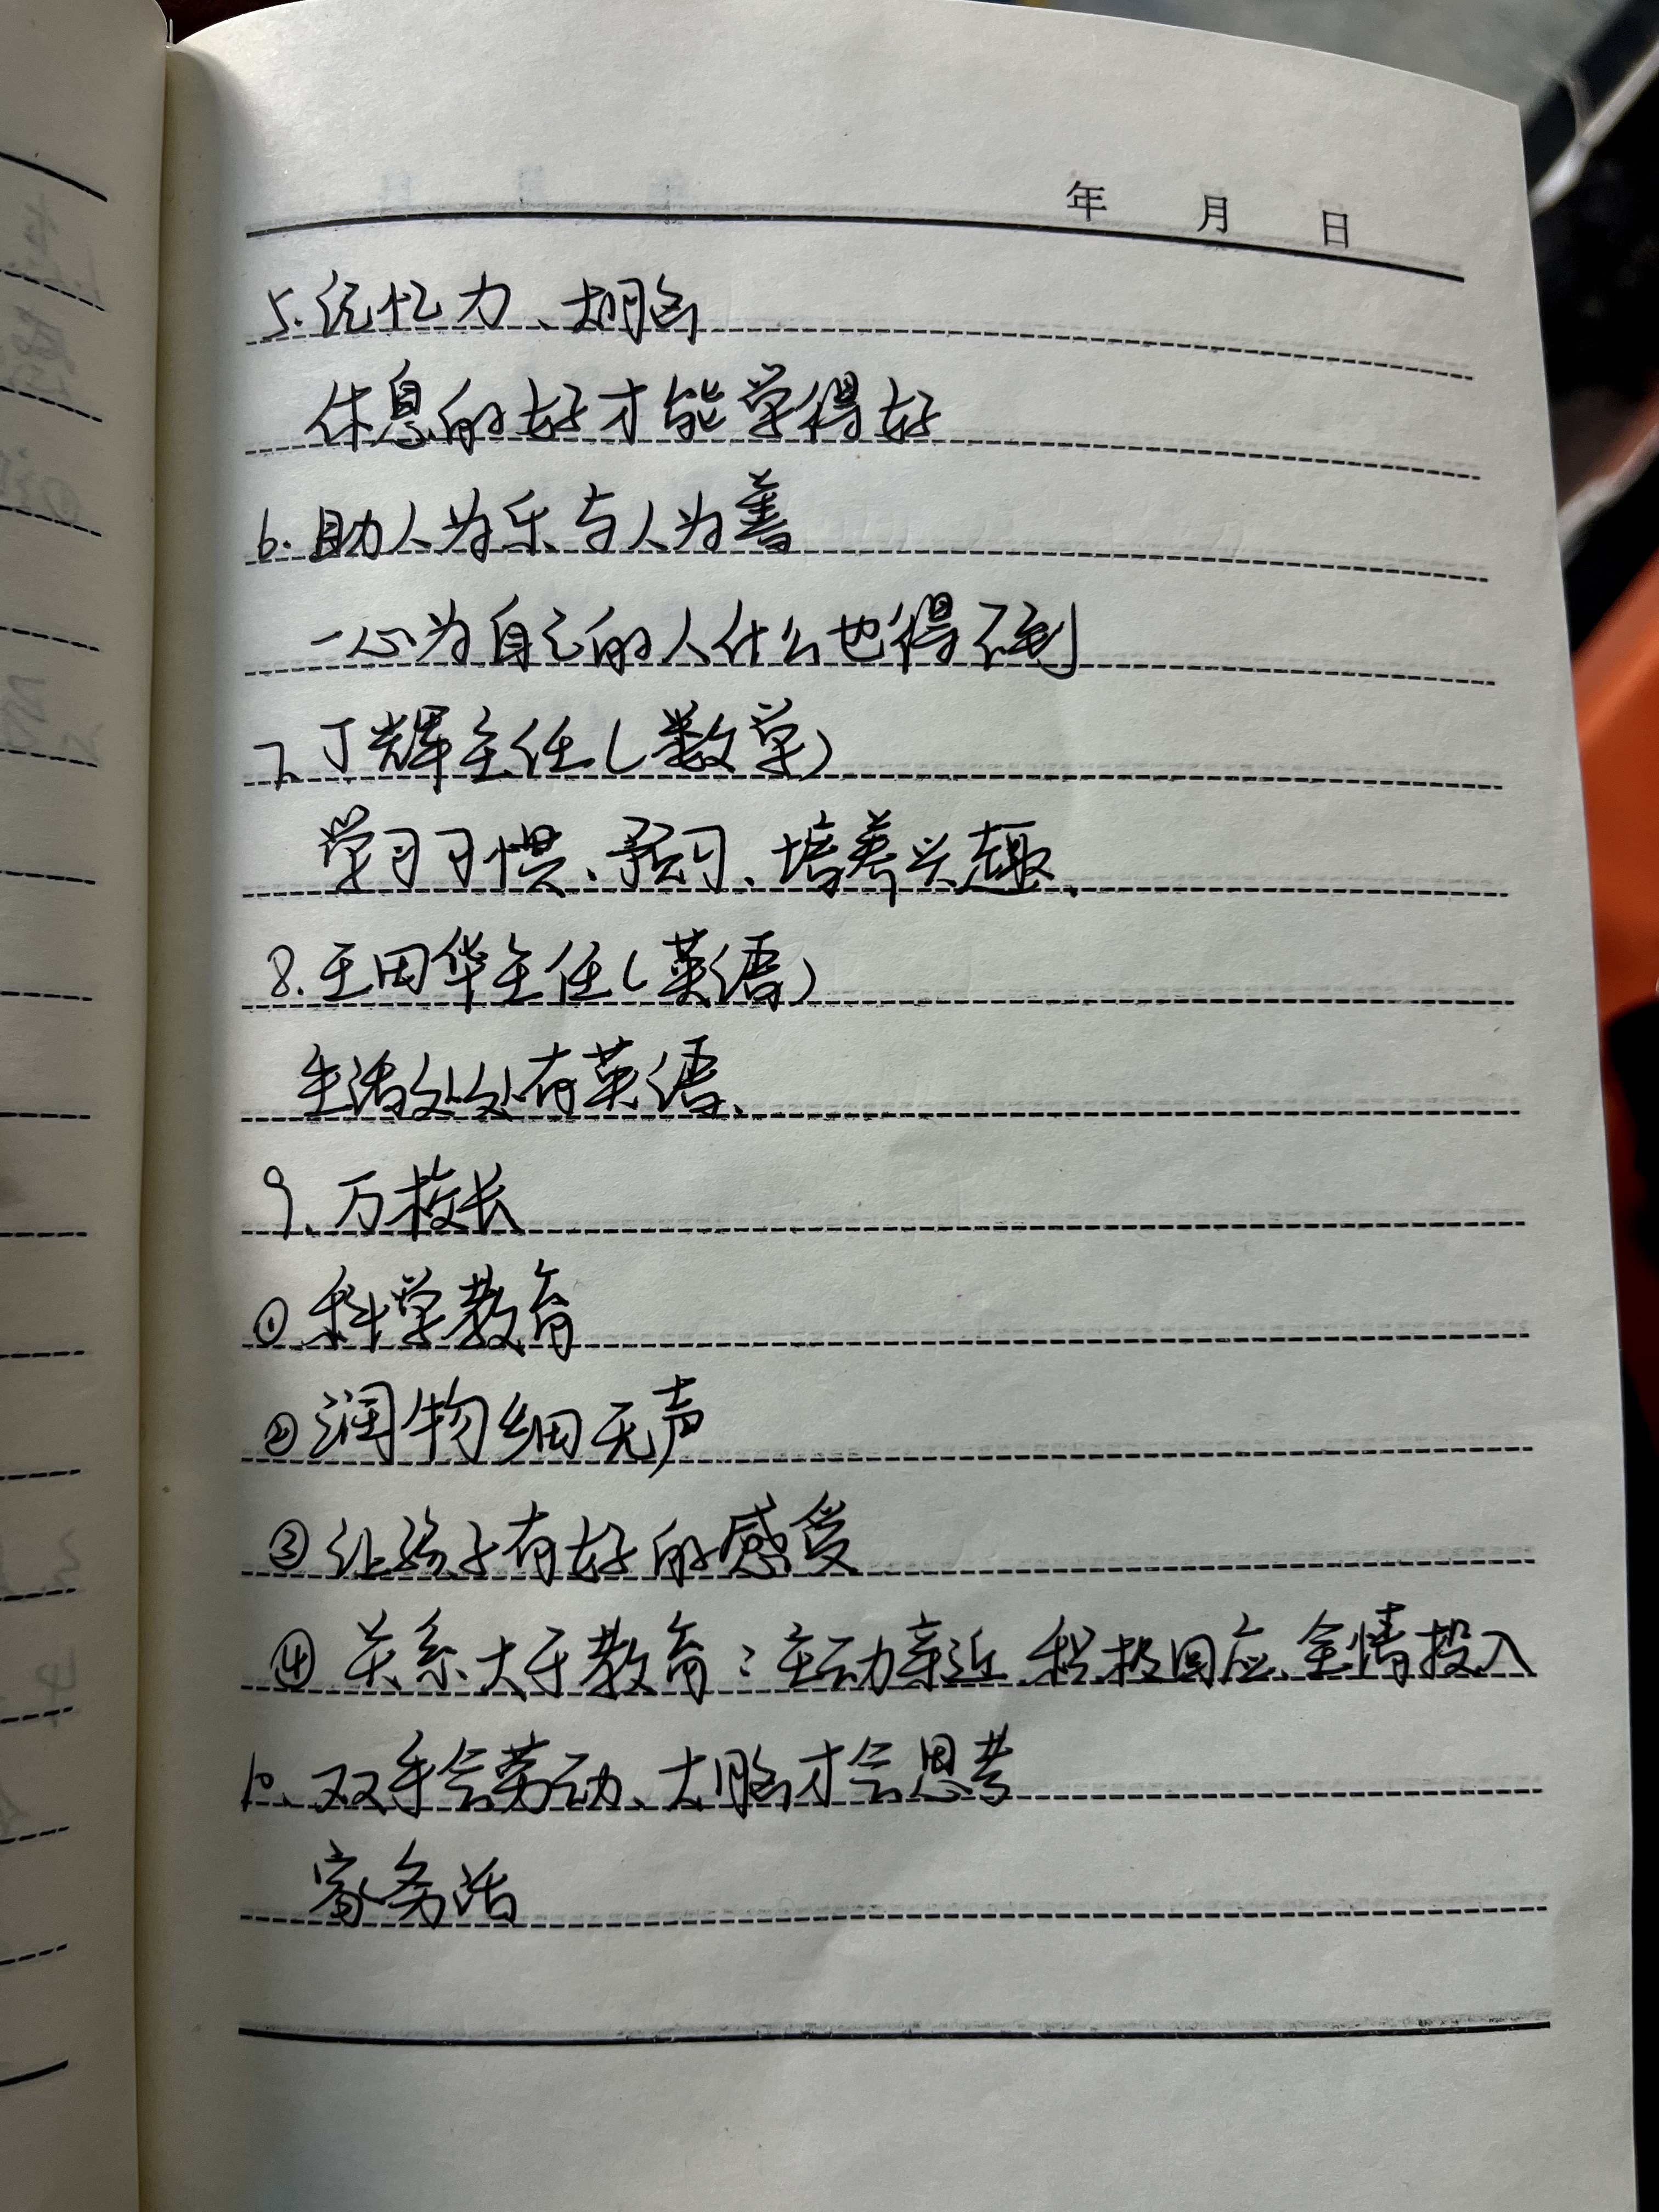 年 月 日
5.记忆力、大脑
休息的好才能学得好
6.助人为乐与人为善
一心为自己的人什么也得不到
7、丁辉主任(数学)
学习习惯、预习、培养兴趣、
8.王田华主任(英语)
生活处处有英语、
9、万校长
①科学教育
②润物细无声
③让孩子有好的感受
④关系大于教育:主动亲近、积极回应、全情投入
10、双手会劳动、大脑才会思考
家务活